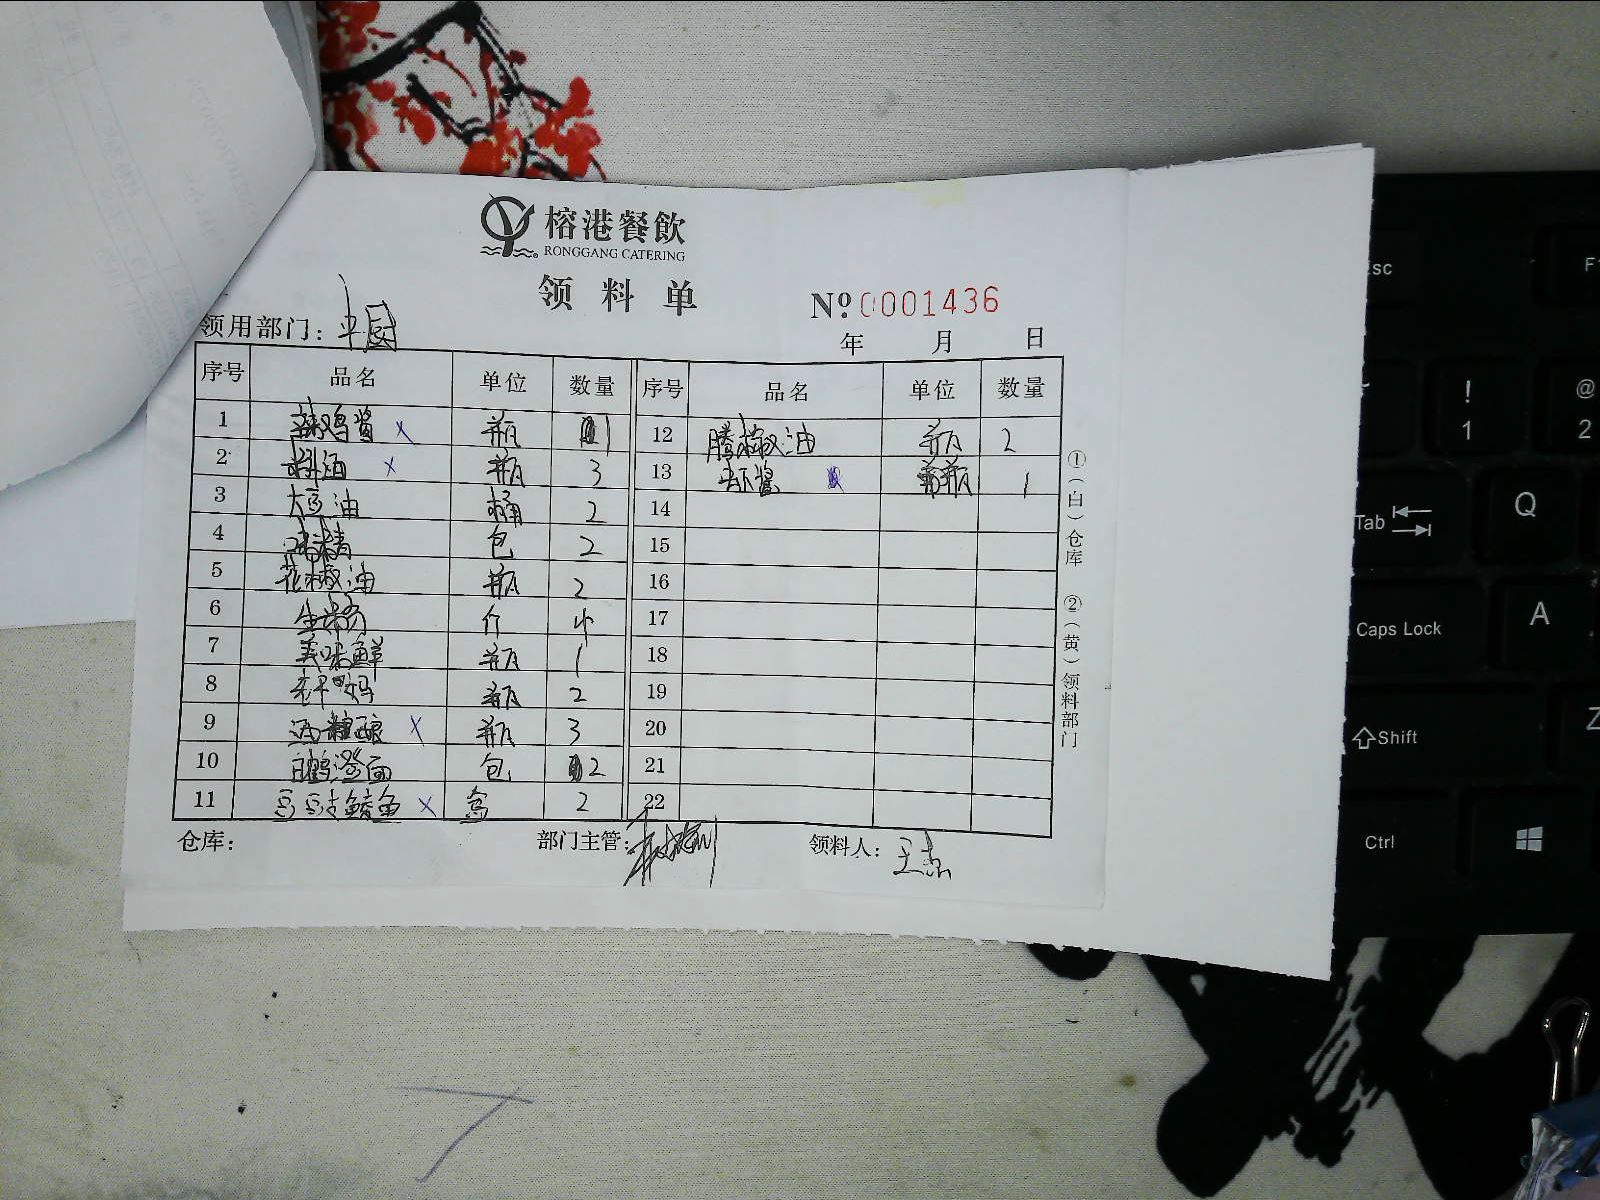 榕港餐飲
RONGGANG CATERING
领料单
№ 0001436
领用部门：厨
年 月 日
序号 品名 单位 数量 序号 品名 单位 数量
1 辣鸡酱 × 瓶 1 12 藤椒油 瓶 2
2 料酒 × 瓶 3 13 瓶 1
3 大豆油 桶 2 14
4 鸡精 包 2 15
5 花椒油 瓶 2 16
6 生粉 斤 4 17
7 美味鲜 瓶 1 18
8 老干妈 瓶 2 19
9 酒酿 × 瓶 3 20
10 白鹤澄面 包 2 21
11 豆豆豉鲮鱼 × 盒 2 22
仓库： 部门主管： 领料人：王杰
①（白）仓库 ②（黄）领料部门
Esc
F1
! 1
@ 2
Tab
Q
Caps Lock
A
Shift
Z
Ctrl